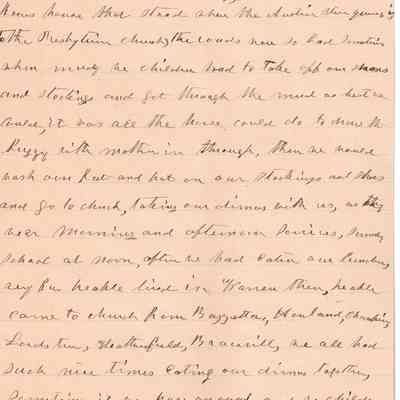 house that stood where the Audio store
to the Presbyterian church, the roads were so bad sometimes
when muddy we children had to take off our shoes
and stockings and get through the mud as best we
could, it was all the horse could do to draw the
Buggy with mother in through, then we would
wash our feet and put on our stockings and shoes
and go to church, taking our dinner with us, as they
were morning and afternoon services, Sunday
School at noon, after we had eaten our lunches,
very few people lived in Warren then, people
came to church from Bazzetta, Howland, Champion,
Lordstown, Weathersfield, Braceville, we all had
such nice times eating our dinner together,